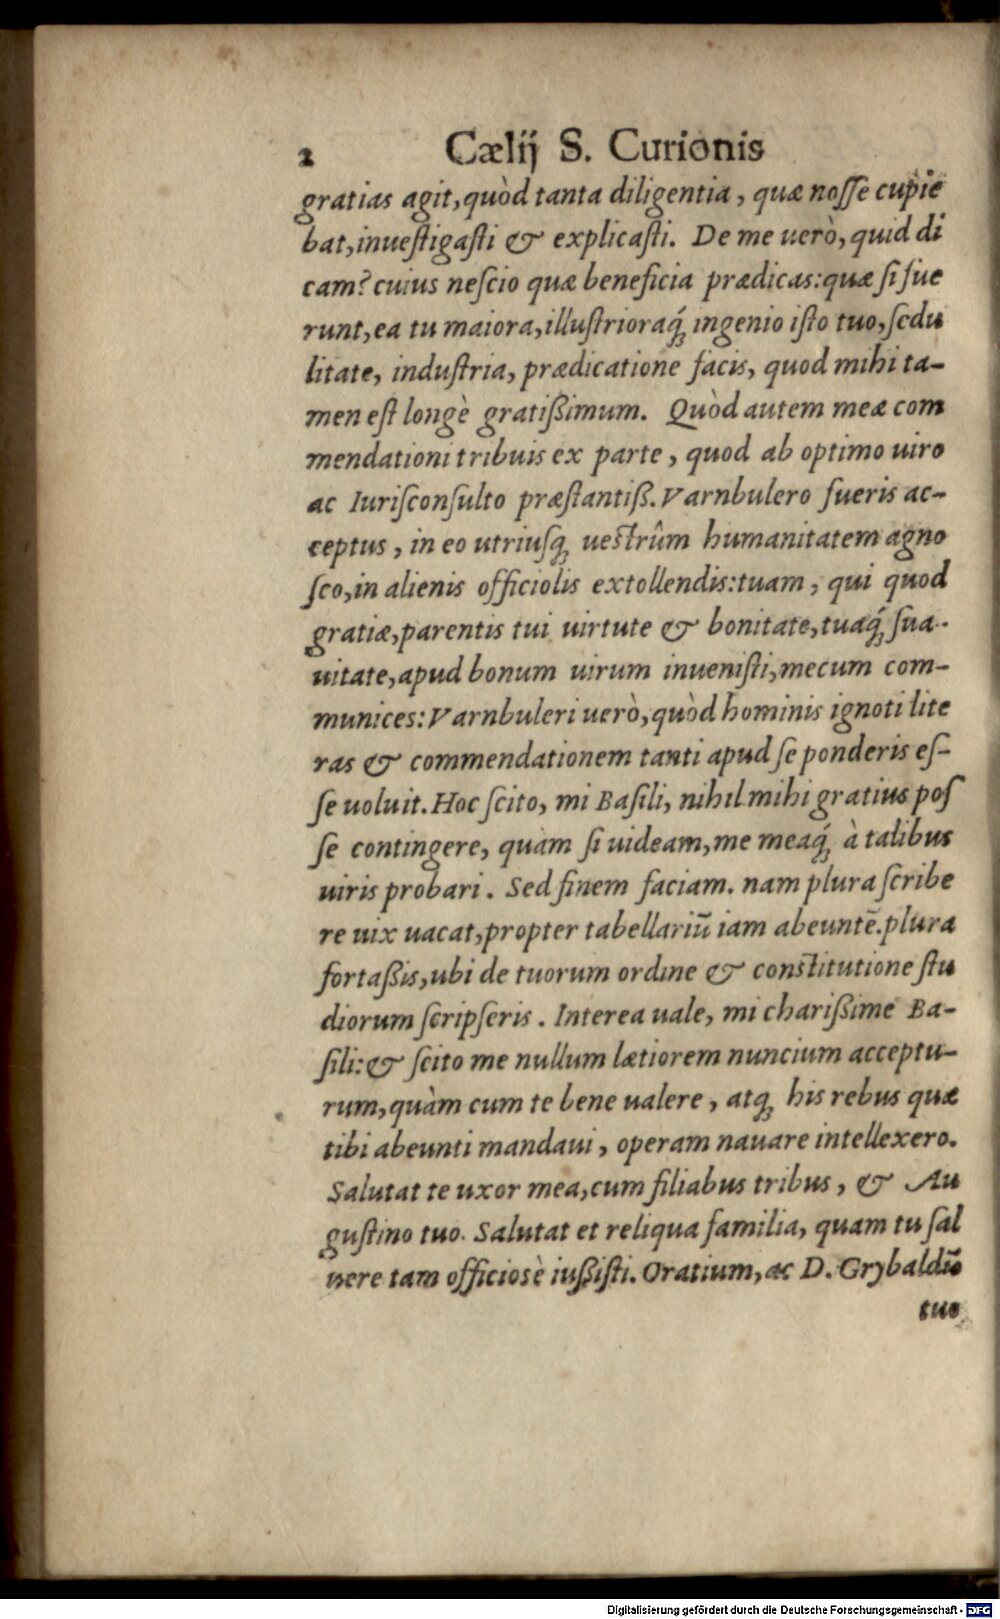 2 Cælij S. Curionis
gratias agit, quòd tanta diligentia, quæ noſſe cupie
bat, inueſtigaſti & explicaſti. De me uerò, quid di
cam? cuius neſcio quæ beneficia prædicas: quæ ſi fue
runt, ea tu maiora, illuſtrioraq́ꝫ ingenio iſto tuo, ſedu
litate, induſtria, prædicatione facis, quod mihi ta-
men eſt longè gratißimum. Quòd autem meæ com
mendationi tribuis ex parte, quod ab optimo uiro
ac Iuriſconſulto præſtantiß. Varnbulero fueris ac-
ceptus, in eo utriuſqꝫ ueſtrûm humanitatem agno
ſco, in alienis officiolis extollendis: tuam, qui quod
gratiæ, parentis tui uirtute & bonitate, tuaq́ꝫ ſua-
uitate, apud bonum uirum inueniſti, mecum com-
munices: Varnbuleri uerò, quòd hominis ignoti lite
ras & commendationem tanti apud ſe ponderis eſ-
ſe uoluit. Hoc ſcito, mi Baſili, nihil mihi gratius poſ
ſe contingere, quàm ſi uideam, me meaq́ꝫ à talibus
uiris probari. Sed finem faciam. nam plura ſcribe
re uix uacat, propter tabellariū iam abeuntē. plura
fortaßis, ubi de tuorum ordine & conſtitutione ſtu
diorum ſcripſeris. Interea uale, mi charißime Ba-
ſili: & ſcito me nullum lætiorem nuncium acceptu-
rum, quàm cum te bene ualere, atqꝫ his rebus quæ
tibi abeunti mandaui, operam nauare intellexero.
Salutat te uxor mea, cum filiabus tribus, & Au
guſtino tuo. Salutat et reliqua familia, quam tu ſal
uere tam officioſè iußiſti. Oratium, ac D. Grybaldū
tuo
Digitalisierung gefördert durch die Deutsche Forschungsgemeinschaft - DFG